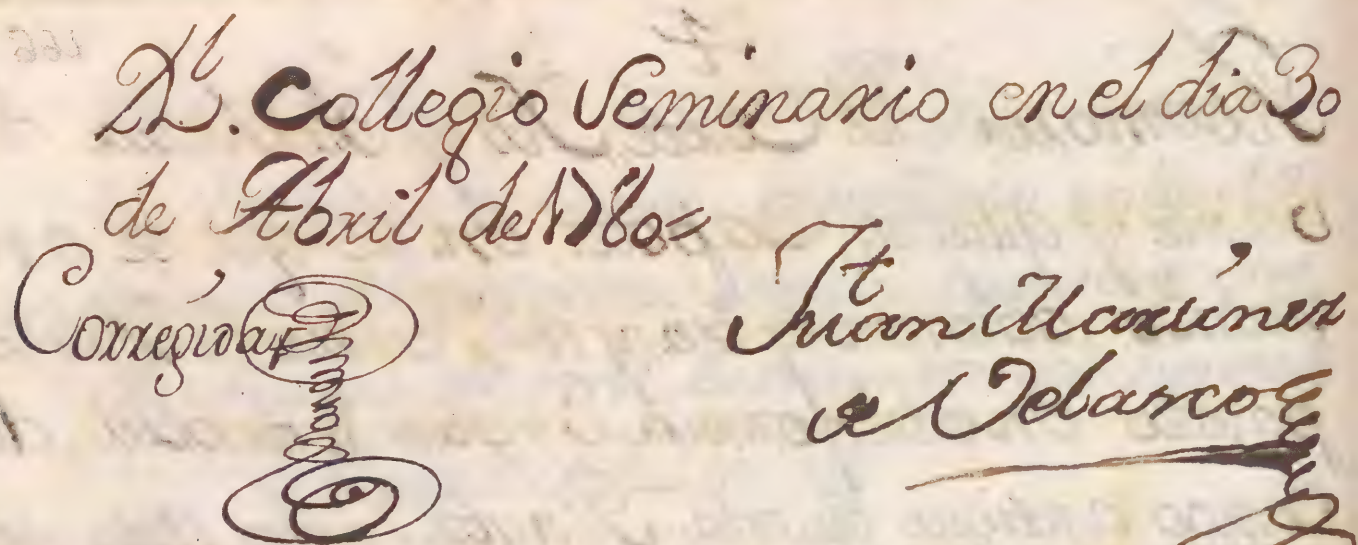 Rl. Collegio Seminario en el dia 30
de Abril de 1780=
Corregidas
Jt
Juan Martinez
de Velasco